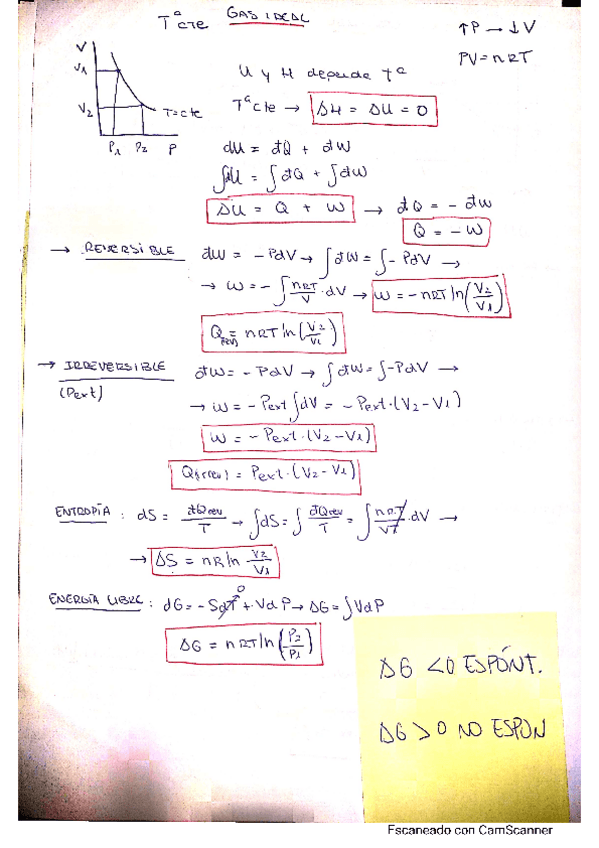 Tª cte GAS IDEAL
↑P → ↓V
PV = nRT
V
V1
V2
T=cte
P1 P2 P
U y H depende Tª
Tª cte → ΔH = ΔU = 0
dU = đQ + đW
∫dU = ∫đQ + ∫đW
ΔU = Q + W → đQ = - đW
Q = - W
→ REVERSIBLE đW = -PdV → ∫đW = ∫-PdV →
→ W = - ∫ nRT/V · dV → W = - nRT ln(V2/V1)
Qrev = nRT ln(V2/V1)
→ IRREVERSIBLE đW = -PdV → ∫đW = ∫-PdV →
(Pext)
→ W = - Pext ∫dV = - Pext · (V2 - V1)
W = - Pext · (V2 - V1)
Qirrev = Pext · (V2 - V1)
ENTROPÍA : dS = đQrev/T → ∫dS = ∫ đQrev/T = ∫ nRT/VT · dV →
→ ΔS = nR ln V2/V1
ENERGÍA LIBRE : dG = - SdT 0 + VdP → ΔG = ∫VdP
ΔG = nRT ln(P2/P1)
ΔG < 0 ESPÓNT.
ΔG > 0 NO ESPON
Escaneado con CamScanner